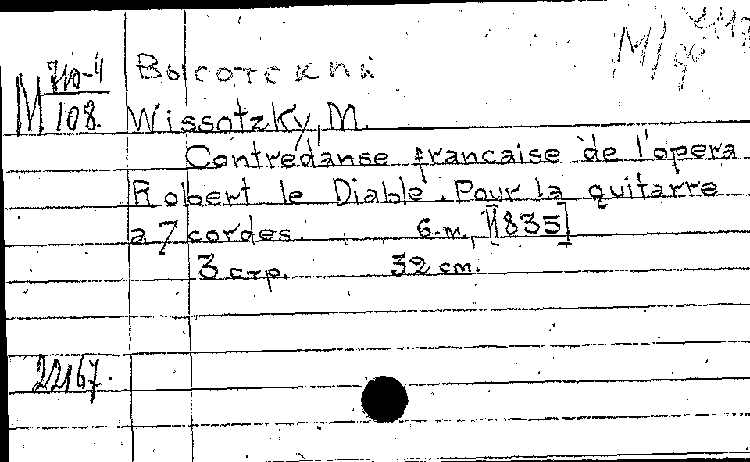 M 710-4
108.
Высотский
Wissotzky, M.
Contredanse francaise de l'opera
Robert le Diable. Pour la quitarre
a 7 cordes. б.м., [1835]
3 стр. 32 cm.
22167.